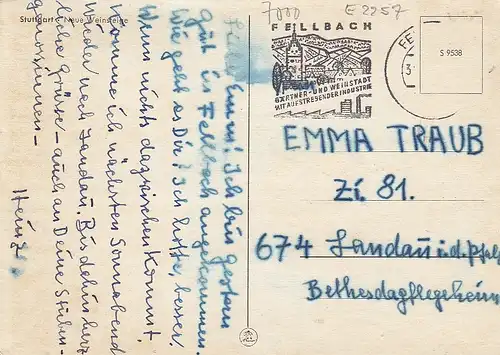 Stuttgart · Neue Weinsteige
7000
E 2257
FELLBACH
GÄRTNER- UND WEINSTADT
MIT AUFSTREBENDER INDUSTRIE
FE
3
S 9538
Liebe Emmi! Ich bin gestern
gut in Fellbach angekommen.
Wie geht es Dir? Ich hoffe, besser.
Wenn nichts dazwischen kommt,
komme ich nächsten Sonnabend
wieder nach Landau. Bis dahin herz-
liche Grüsse - auch an Deine Stuben-
genossinnen -
Heinz.
EMMA TRAUB
Zi. 81.
674 Landau i.d. Pfalz
Bethesdapflegeheim